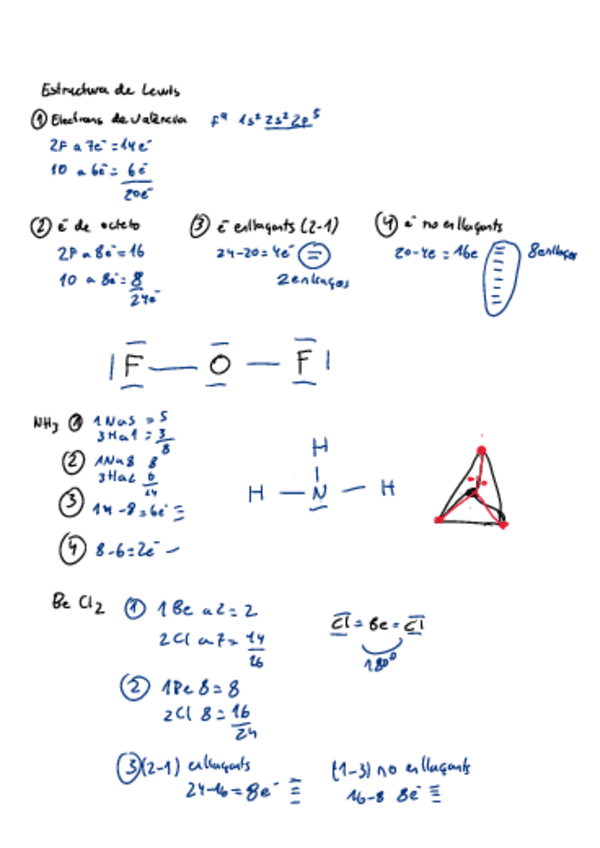 Estructura de Lewis
① Electrons de valència F⁹ 1s² 2s² 2p⁵
2F a 7e⁻ = 14e⁻
1O a 6e⁻ = 6e⁻
20e⁻
② e⁻ de octeto
2F a 8e⁻ = 16
1O a 8e⁻ = 8
24e⁻
③ e⁻ enllaçants (2-1)
24-20 = 4e⁻
2 enllaços
④ e⁻ no enllaçants
20-4e = 16e 8 enllaços
|F — O — F|
NH₃ ① 1N a 5 = 5
3H a 1 = 3
8
② 1N a 8 8
3H a 2 6
14
③ 14-8=6e⁻
④ 8-6=2e⁻
H
H — N — H
Be Cl₂ ① 1Be a 2 = 2
2Cl a 7 = 14
16
Cl = Be = Cl
180°
② 1Be 8 = 8
2Cl 8 = 16
24
③ (2-1) enllaçants
24-16 = 8e⁻
(1-3) no enllaçants
16-8 8e⁻